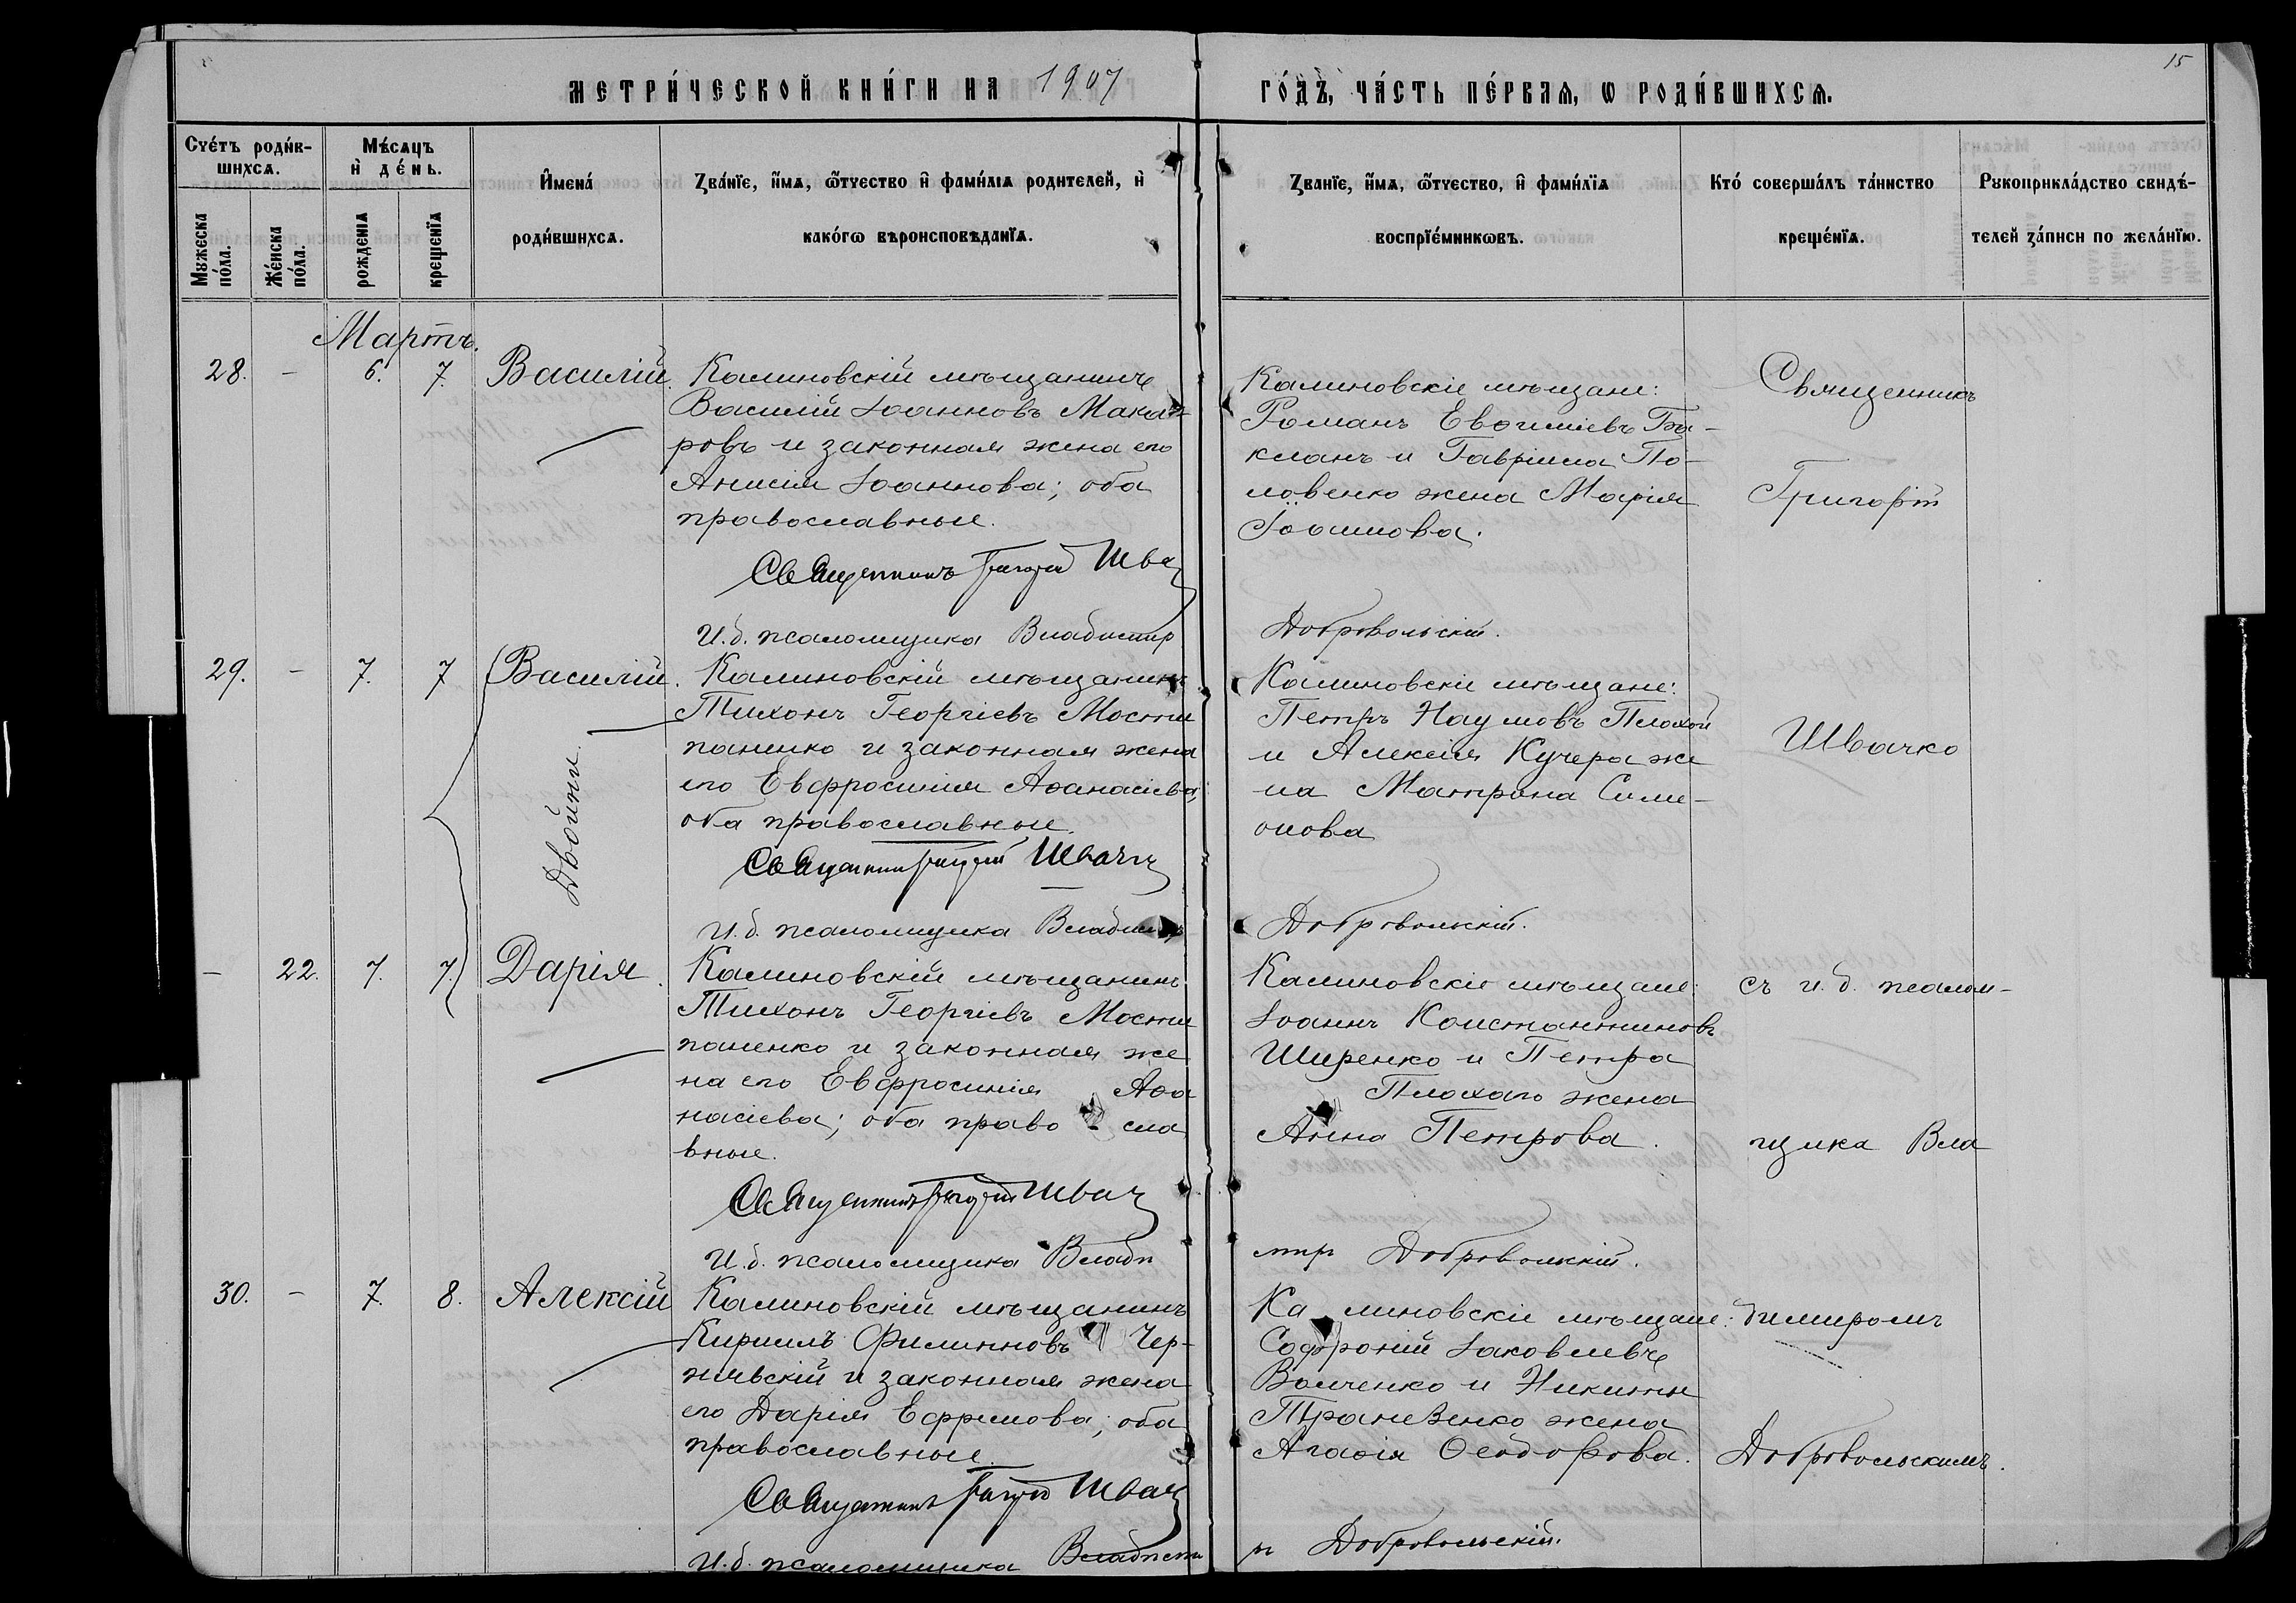 15
МЕТРИ́ЧЕСКОЙ КНИ́ГИ НА 1907 ГО́ДЪ, ЧА́СТЬ ПЕ́РВАѦ, Ѡ РОДИ́ВШИХСѦ.
Сче́тъ роди́в-
шихсѧ.
Му́жеска
по́ла.
Же́нска
по́ла.
Мѣ́сѧцъ
и҆ де́нь.
рожденїѧ
крещенїѧ
И҆мена́
роди́вшихсѧ.
Зва́нїе, и҆́мѧ, ѻ҆́тчество и҆ фами́лїѧ родителей, и҆
како́гѡ вѣроисповѣданїѧ.
Званїе, и҆́мѧ, ѻ҆́тчество, и҆ фами́лїѧ
воспрїе́мникѡвъ.
Кто́ соверша́лъ та́инство
креще́нїѧ.
Рꙋкоприкла́дство свидѣ́-
телей за́писи по жела́нїю.
Мартъ.
28. - 6. 7. Василій.
Калиновскій мѣщанинъ
Василій Іоанновъ Мака-
ровъ и законная жена его
Анисія Іоаннова; оба
православные.
Священникъ Григорій Швач
И.д. псаломщика Владимир
Калиновскіе мѣщане:
Романъ Евѳиміевъ Ба-
кланъ и Гавріила По-
ловенко жена Марія
Іоаннова.
Добровольскій.
Священникъ
Григорій
29. - 7. 7 Василій.
Двойни
Калиновскій мѣщанинъ
Тихонъ Георгіевъ Мости
паненко и законная жена
его Евфросинія Аѳанасіева;
оба православные.
Священник Григорій Швачк
И.д. псаломщика Владимир
Калиновскіе мѣщане:
Петръ Наумовъ Плохой
и Алексія Кучера же
на Матрона Симе-
онова
Добровольскій.
Швачко
- 22. 7. 7. Дарія.
Калиновскій мѣщанинъ
Тихонъ Георгіевъ Мости
паненко и законная же
на его Евфросинія Аѳа
насіева; оба право - сла
вные.
Священникъ Григорій Швач
И.д. псаломщика Влади
Калиновскіе мѣщане:
Іоаннъ Константиновъ
Ширенко и Петра
Плохаго жена
Анна Петрова.
мир Добровольскій.
съ и. д. псалом-
щика Вла
30. - 7. 8. Алексій
Калиновскій мѣщанинъ
Кириллъ Филипповъ Чер-
нявскій и законная жена
его Дарія Ефремова; оба
православные.
Священникъ Григорій Швач
И.д. псаломщика Владими
Ка линовскіе мѣщане:
Софроній Іаковлевъ
Волченко и Никиты
жена
Агаѳія Ѳеодорова.
р Добровольскій.
димиромъ
Добровольскимъ.